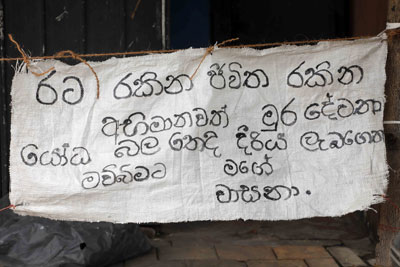 රට රකින ජීවිත රකින
අභිමානවත් මුර දේවතා
යෝධ බල තෙද දිරිය ලැබගෙන
මව්බිමට මගේ
වාසනා.